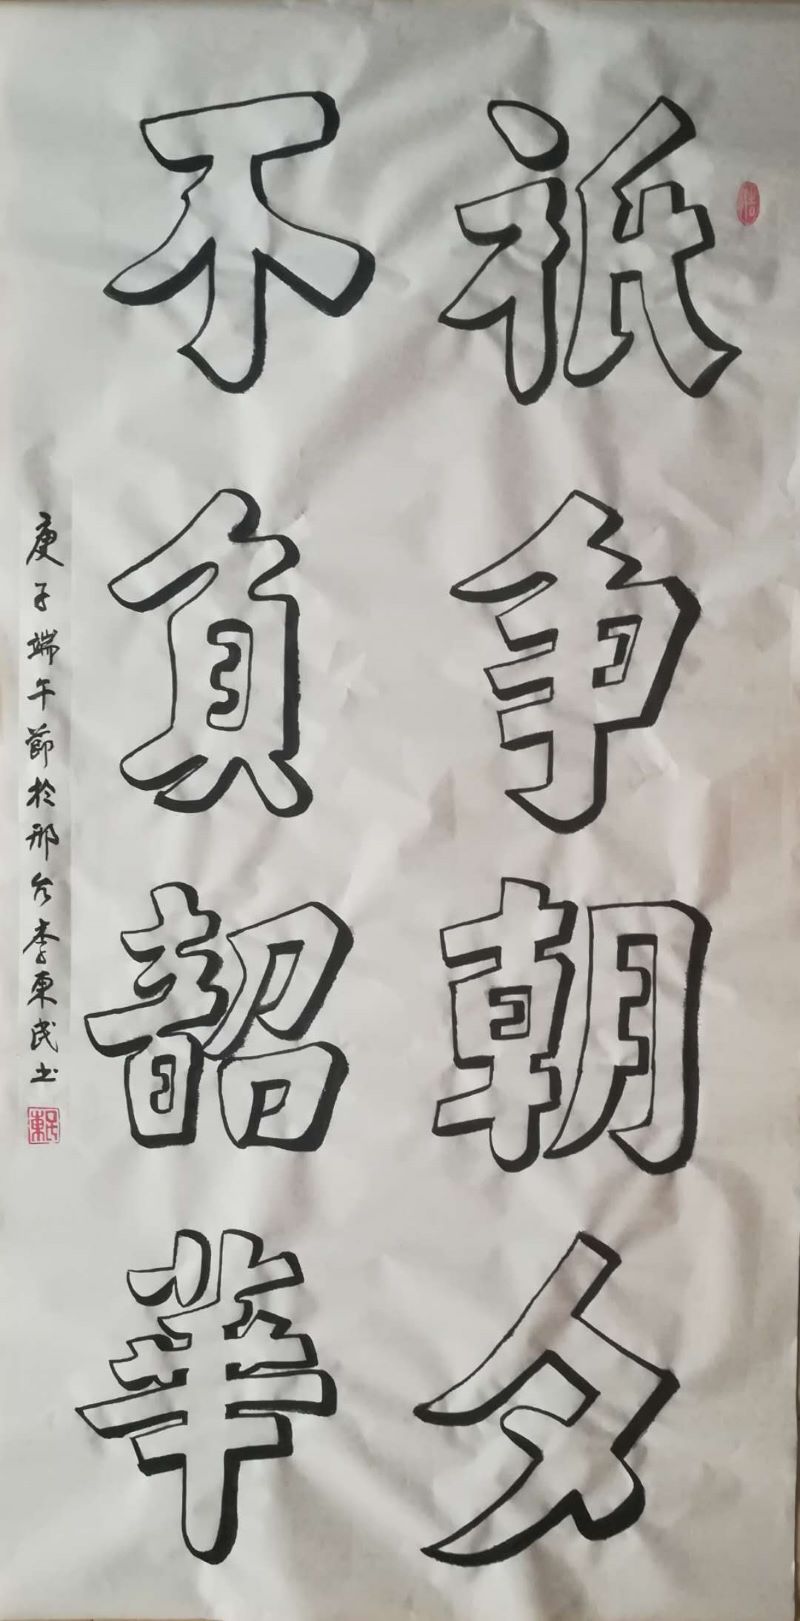 祇争朝夕
不負韶華
庚子端午節於邢台李東民书
東民